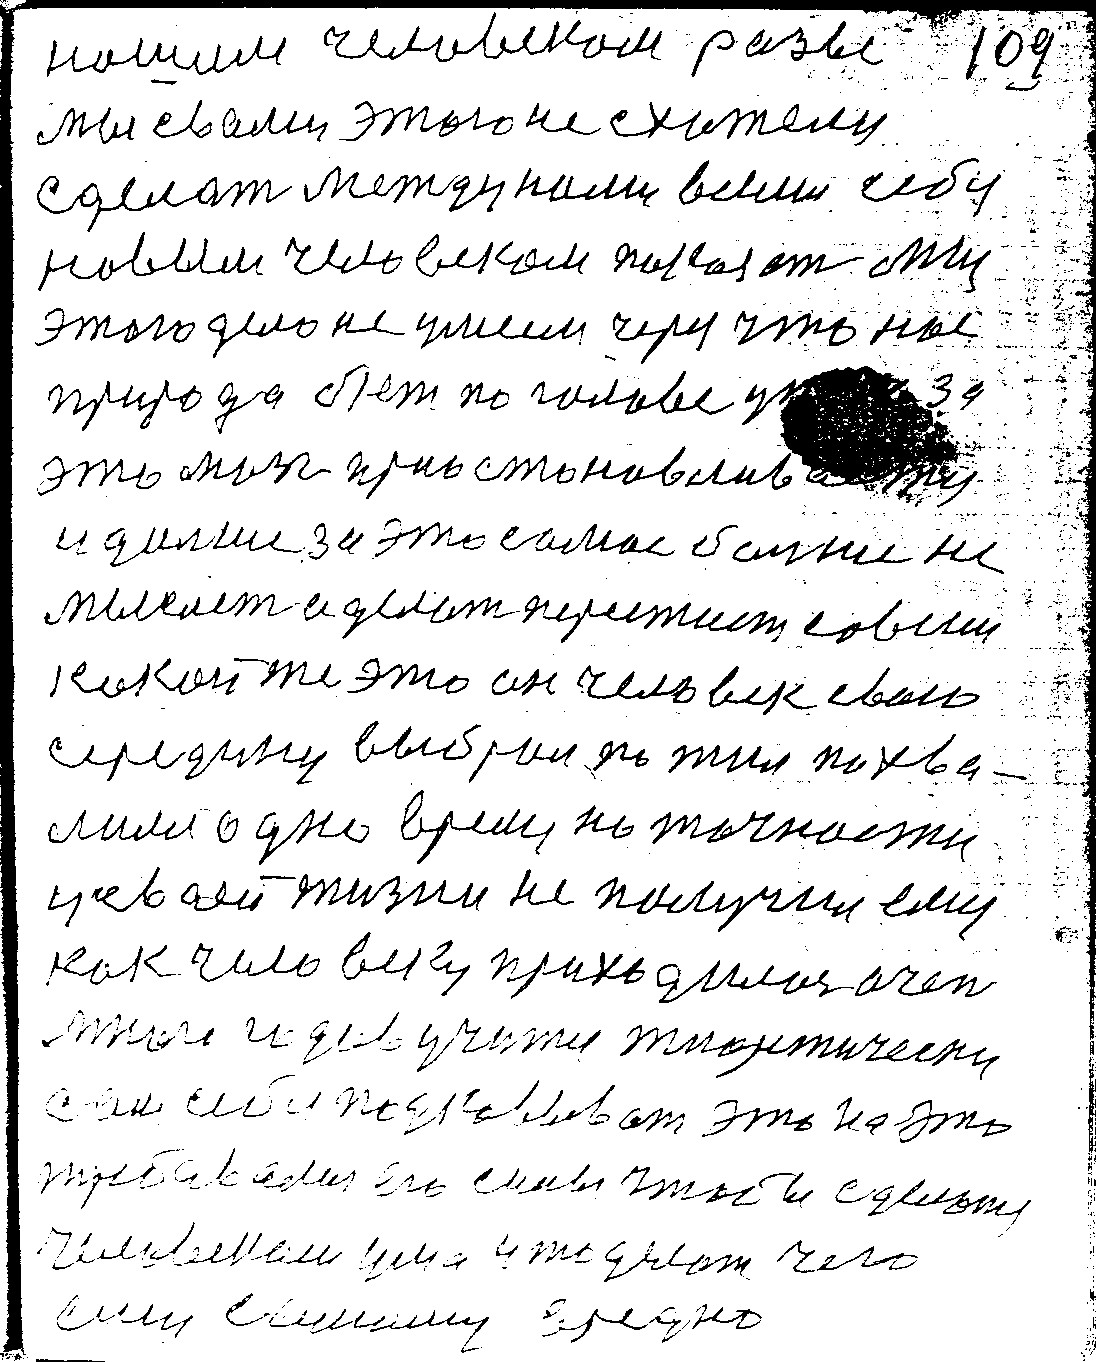 нашим человеком разве 109
мы свами этого не схотели
сделат между нами всеми себу
новым человеком показат мы
этого дело не умеем через что нас
природа бет по голове за
это мозг приостоновлива
и далше за это самое болше не
мыслет а делат перестает совсем
какой же это он человек свою
середину выбрал по жил похва-
лилс одно время но точности
усваей жизни не получил ему
как человеку приходилоз очен
много годов учится тиоретически
сам себе подковыват это на это
требавалис его силы чтобы сделат
человеком ума и то делат чего
ему самому вредно